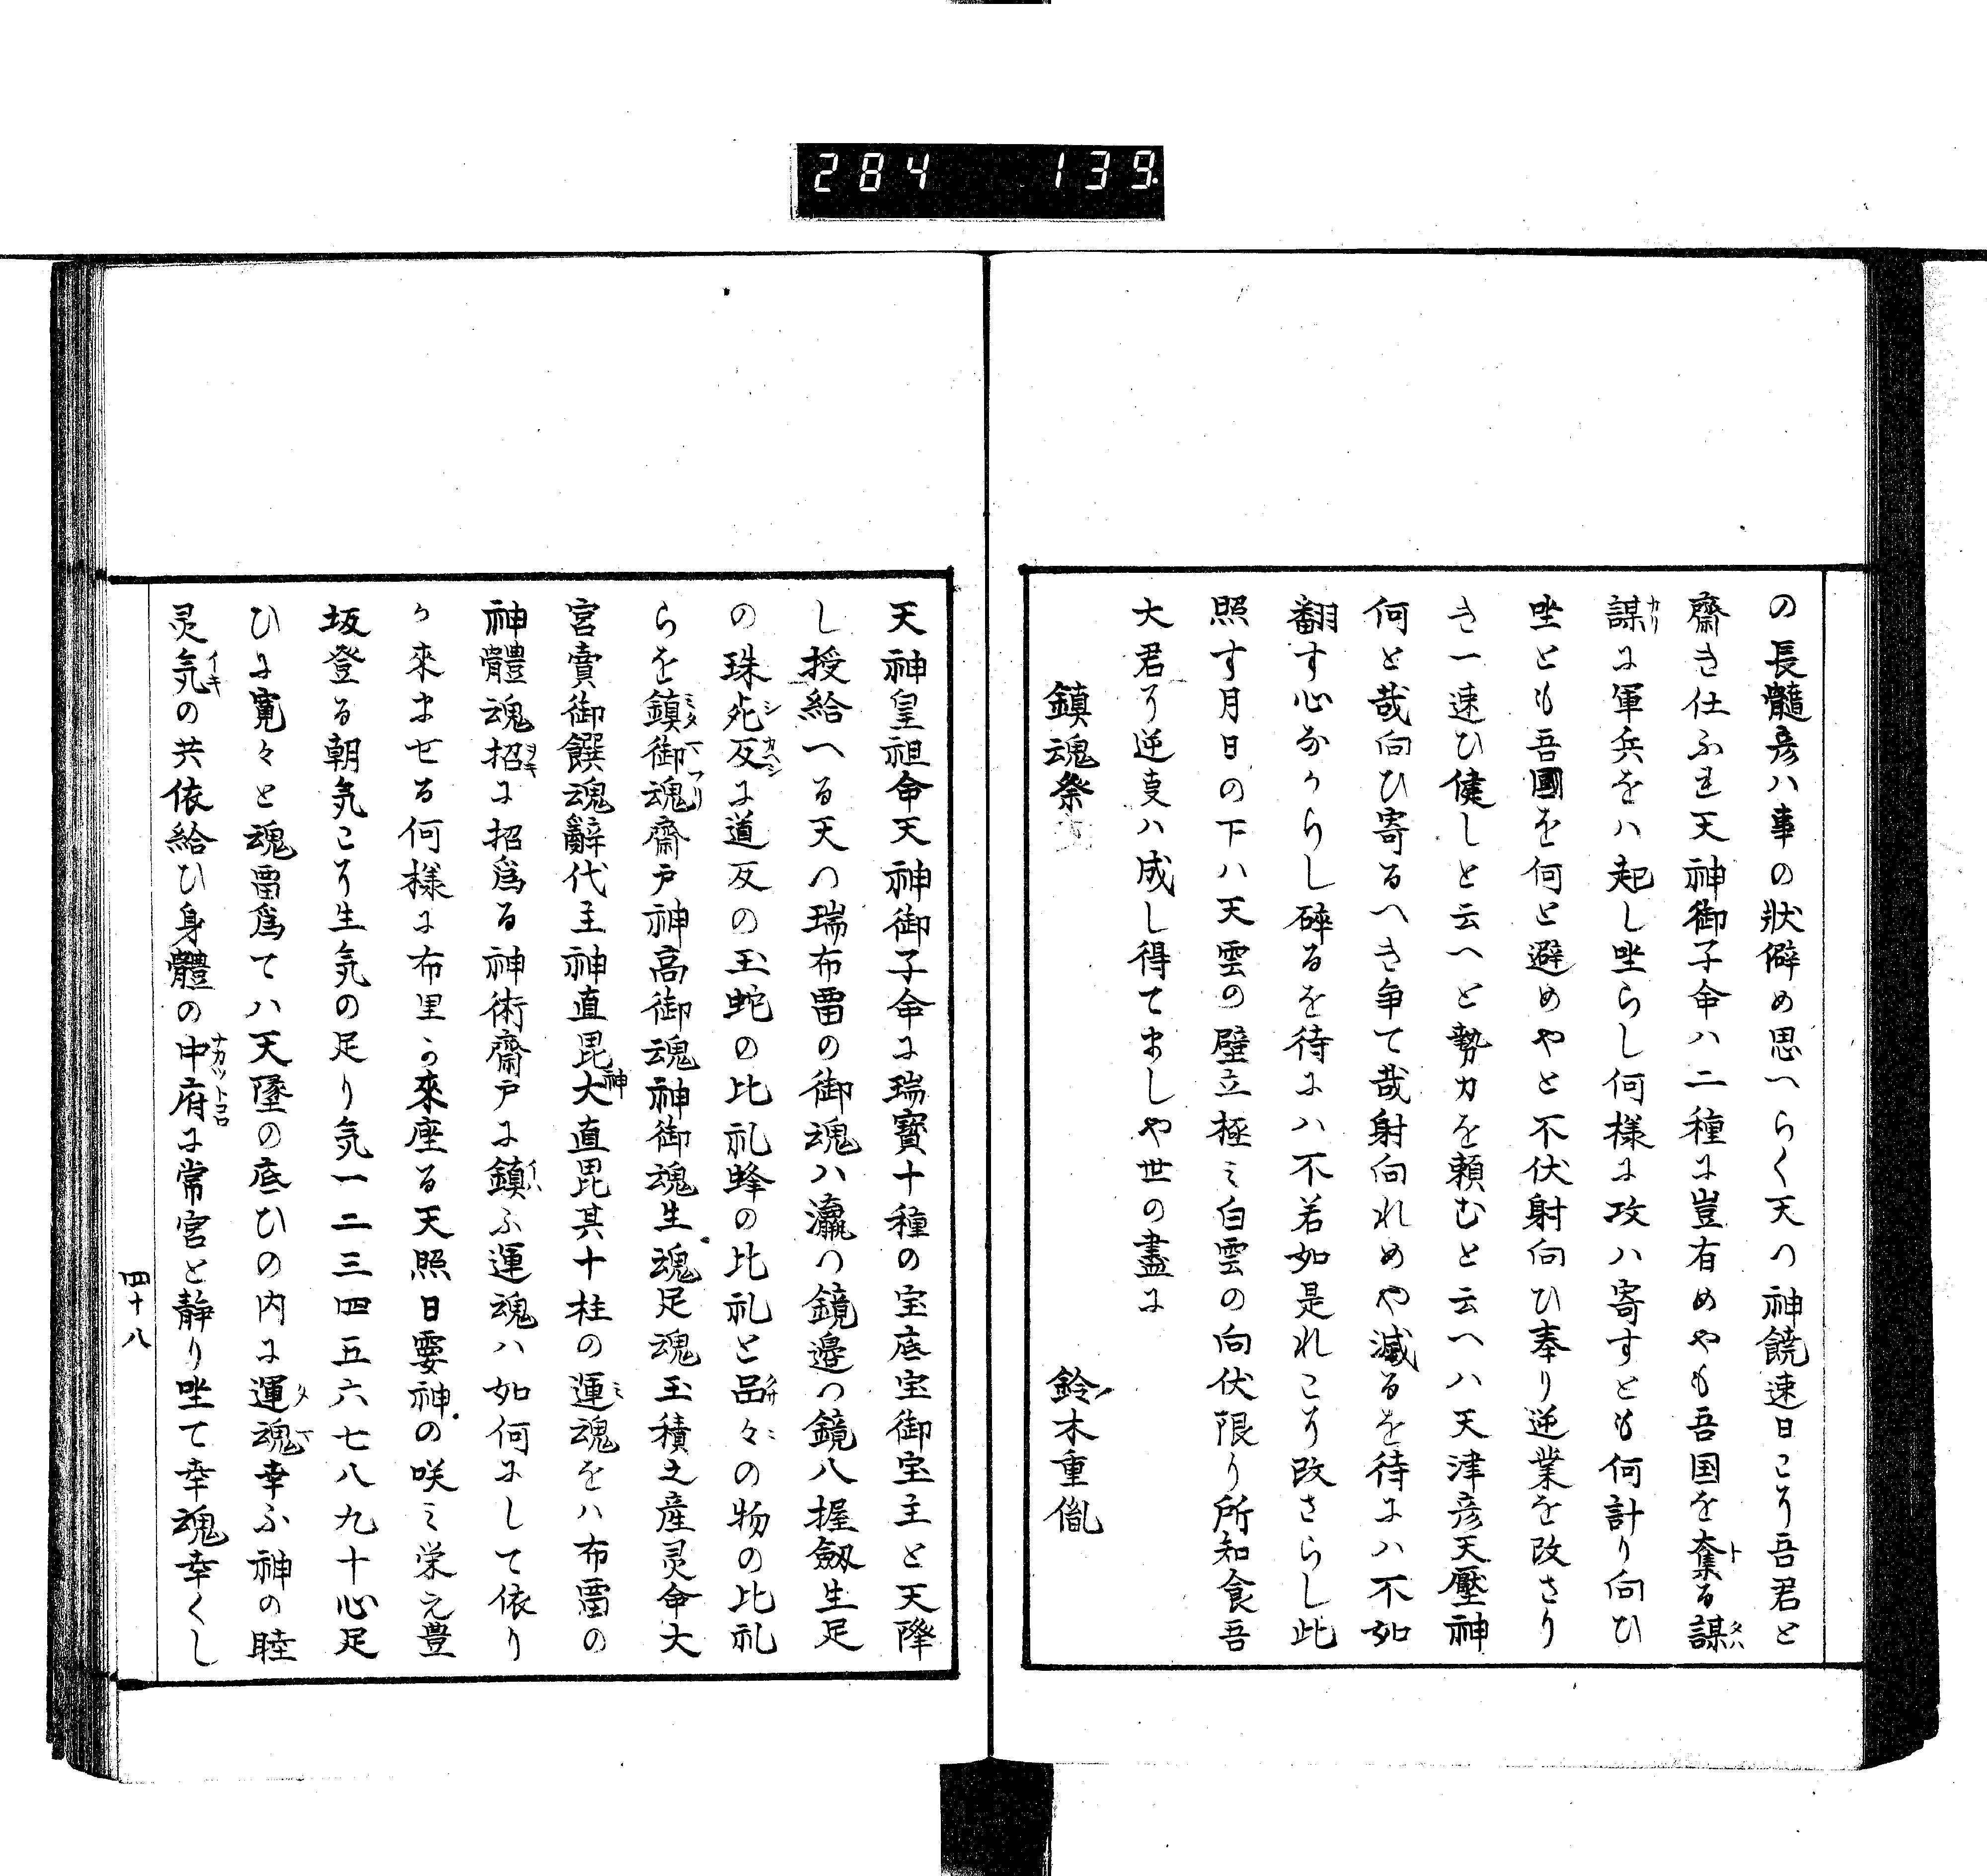 284 139
の長髓彦ハ事の狀僻め思へらく天つ神饒速日こそ吾君と
齋き仕ふれ天神御子命ハ二種に豈有めやも吾国を奪る謀
謀に軍兵をハ起し坐らし何様に攻ハ寄すとも何計り向ひ
坐とも吾國を何と避めやと不伏射向ひ奉り逆業を改さり
き一速ひ健しと云へと勢力を頼むと云へハ天津彦天壓神
何と哉向ひ寄るへき争て哉射向れめや滅るを待にハ不如
翻す心なからし碎るを待にハ不若如是れこそ改さらし此
照す月日の下ハ天雲の壁立極ミ白雲の向伏限り所知食吾
大君そ逆叓ハ成し得てましや世の盡に
鎮魂祭
鈴木重胤
天神皇祖命天神御子命に瑞寳十種の宝底宝御宝主と天降
し授給へる天つ瑞布畱の御魂ハ瀛つ鏡邉つ鏡八握劔生足
の珠死反に道反の玉蛇の比礼蜂の比礼と品々の物の比礼
らを鎮御魂齋戸神高御魂神御魂生魂足魂玉積之産灵命大
宮賣御饌魂辭代主神直毘神大直毘其十柱の運魂をハ布畱の
神體魂招に招爲る神術齋戸に鎮ふ運魂ハ如何にして依り
か來ませる何様に布里か來座る天照日孁神の咲ミ栄え豊
坂登る朝気こそ生気の足り気一二三四五六七八九十心足
ひに寛々と魂畱爲てハ天墜の底ひの内に運魂幸ふ神の睦
灵気の共依給ひ身體の中府に常宮と静り坐て幸魂幸くし
四十八